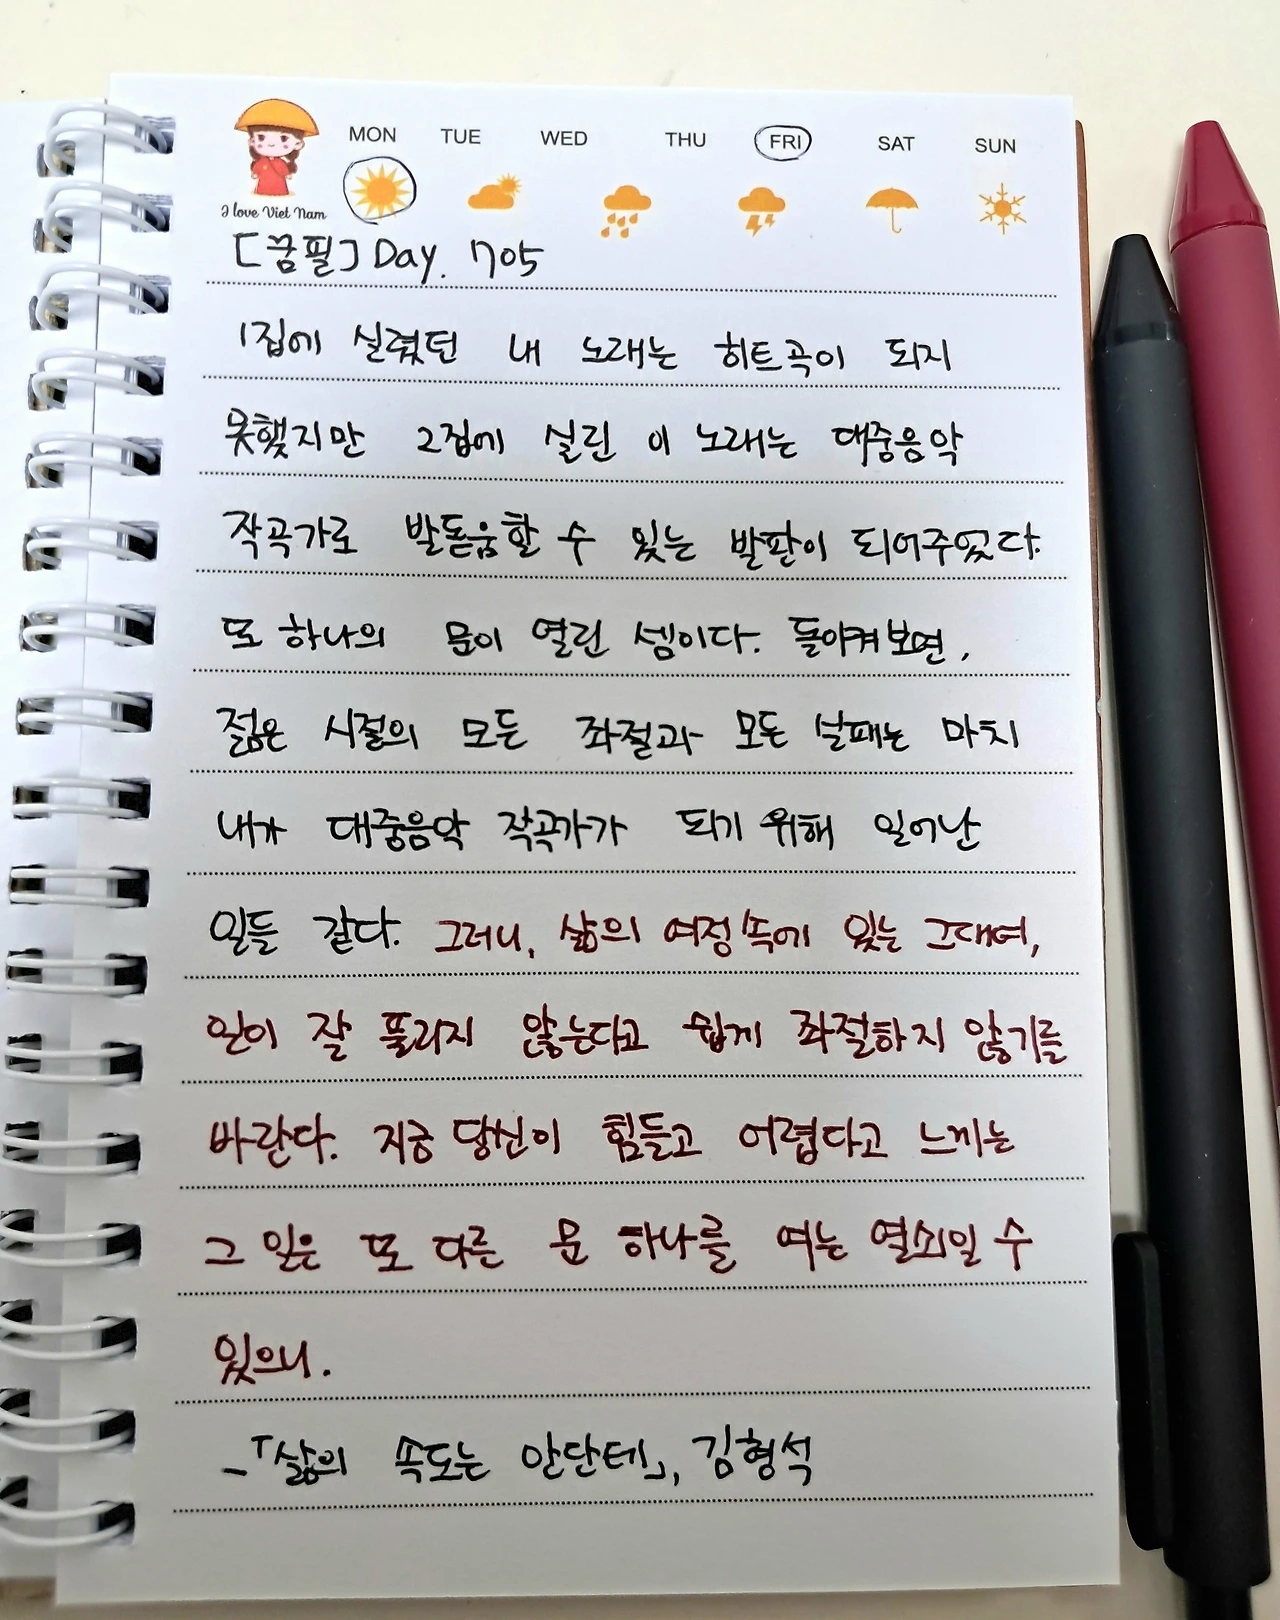 MON TUE WED THU FRI SAT SUN
I love Viet Nam
[꿈필] Day. 705
1집에 실렸던 내 노래는 히트곡이 되지
못했지만 2집에 실린 이 노래는 대중음악
작곡가로 발돋움할 수 있는 발판이 되어주었다.
또 하나의 문이 열린 셈이다. 돌이켜보면,
젊은 시절의 모든 좌절과 모든 실패는 마치
내가 대중음악 작곡가가 되기 위해 일어난
일들 같다. 그러니, 삶의 여정 속에 있는 그대여,
일이 잘 풀리지 않는다고 쉽게 좌절하지 않기를
바란다. 지금 당신이 힘들고 어렵다고 느끼는
그 일은 또 다른 문 하나를 여는 열쇠일 수
있으니.
-「삶의 속도는 안단테」, 김형석